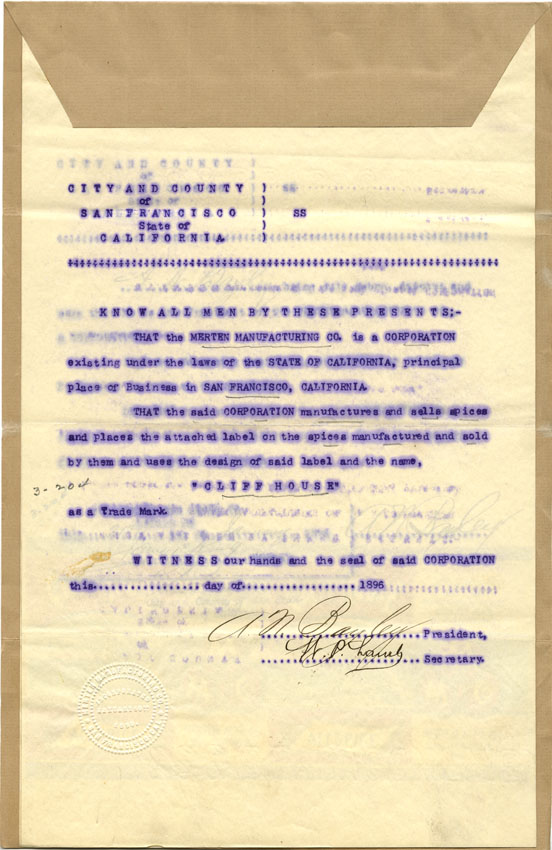 CITY AND COUNTY )
of )
SAN FRANCISCO ) SS
State of )
CALIFORNIA )
KNOW ALL MEN BY THESE PRESENTS;-
THAT the MERTEN MANUFACTURING CO. is a CORPORATION
existing under the laws of the STATE OF CALIFORNIA, principal
place of Business in SAN FRANCISCO, CALIFORNIA
THAT the said CORPORATION manufactures and sells spices
and places the attached label on the spices manufactured and sold
by them and uses the design of said label and the name,
3-204
"CLIFF HOUSE"
as a Trade Mark.
WITNESS our hands and the seal of said CORPORATION
this.................day of.................... 1896
President,
Secretary.